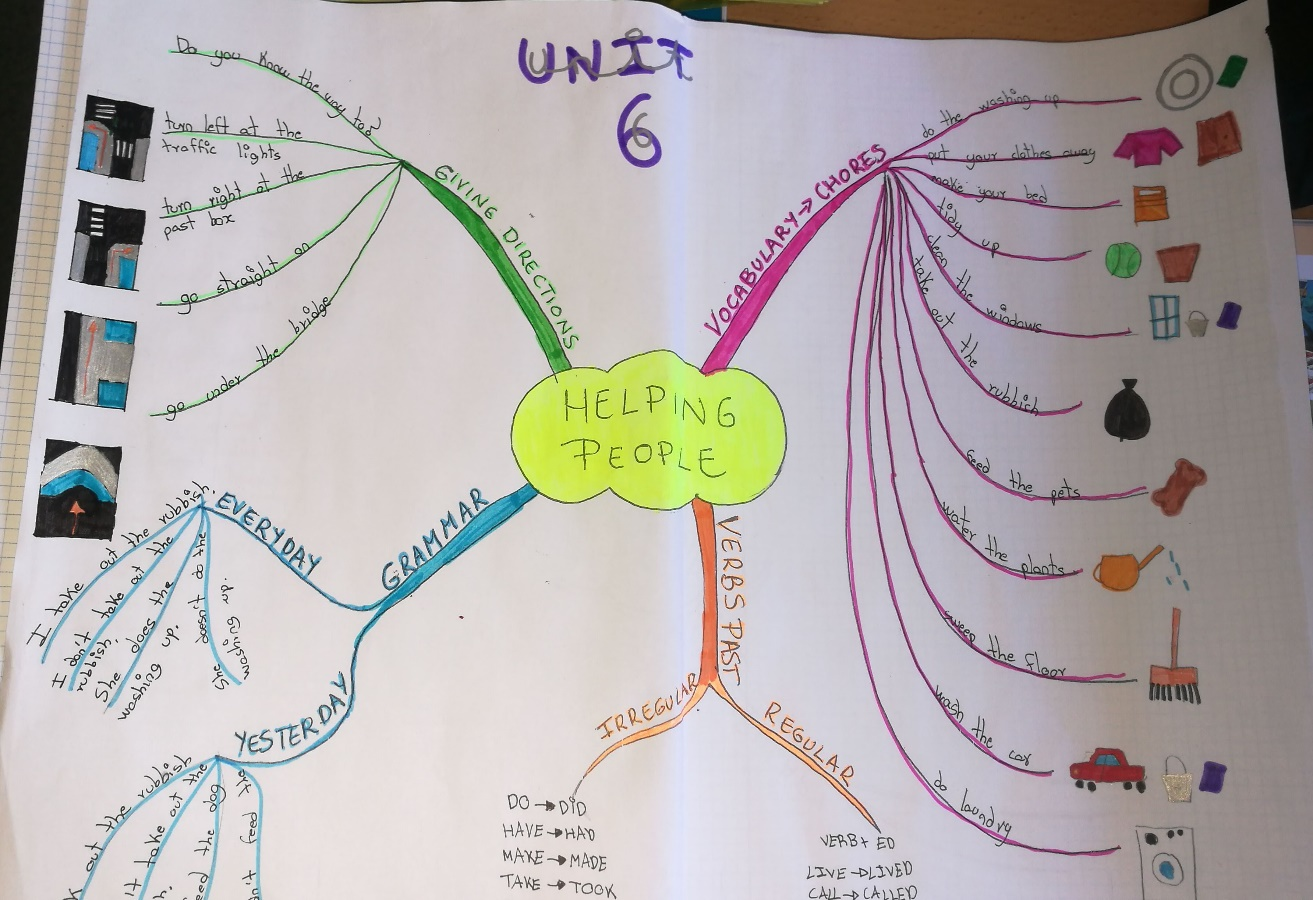 UNIT
6
HELPING
PEOPLE
GIVING DIRECTIONS
Do you know the way too?
turn left at the
traffic lights
turn right at the
past box
go straight on
go under the bridge
VOCABULARY → CHORES
do the washing up
put your clothes away
make your bed
tidy up
clean the windows
take out the rubbish
feed the pets
water the plants
sweep the floor
wash the car
do laundry
GRAMMAR
EVERYDAY
I take out the rubbish.
I don't take out the
rubbish.
She does the
washing up.
She doesn't do the
washing up.
YESTERDAY
out the rubbish
take out the
the dog
feed
VERBS PAST
IRREGULAR
DO → DID
HAVE → HAD
MAKE → MADE
TAKE → TOOK
REGULAR
VERB + ED
LIVE → LIVED
CALL → CALLED